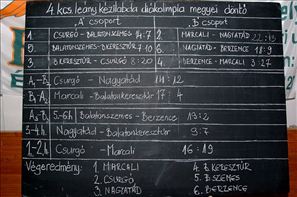 4. kcs. leány kézilabda diákolimpia megyei döntő
"A" csoport "B" csoport
1 CSURGÓ - BALATONSZEMES - 14:7 2 MARCALI - NAGYATÁD - 22:13
5 BALATONSZEMES - B.KERESZTÚR 7:10 6 NAGYATÁD - BERZENCE 18:9
3 B.KERESZTÚR - CSURGÓ 8:20 4 BERZENCE - MARCALI 3:27
A1-B2 Csurgó - Nagyatád 14:12
B1-A2 Marcali - Balatonkeresztúr 17:4
A3-B3 5-6h Balatonszemes - Berzence 19:2
3-4h. Nagyatád - Balatonkeresztúr 9:7
1-2.h Csurgó - Marcali 16-19
Végeredmény: 1. MARCALI 4. B.KERESZTÚR
2. CSURGÓ 5. B.SZEMES
3. NAGYATÁD 6. BERZENCE